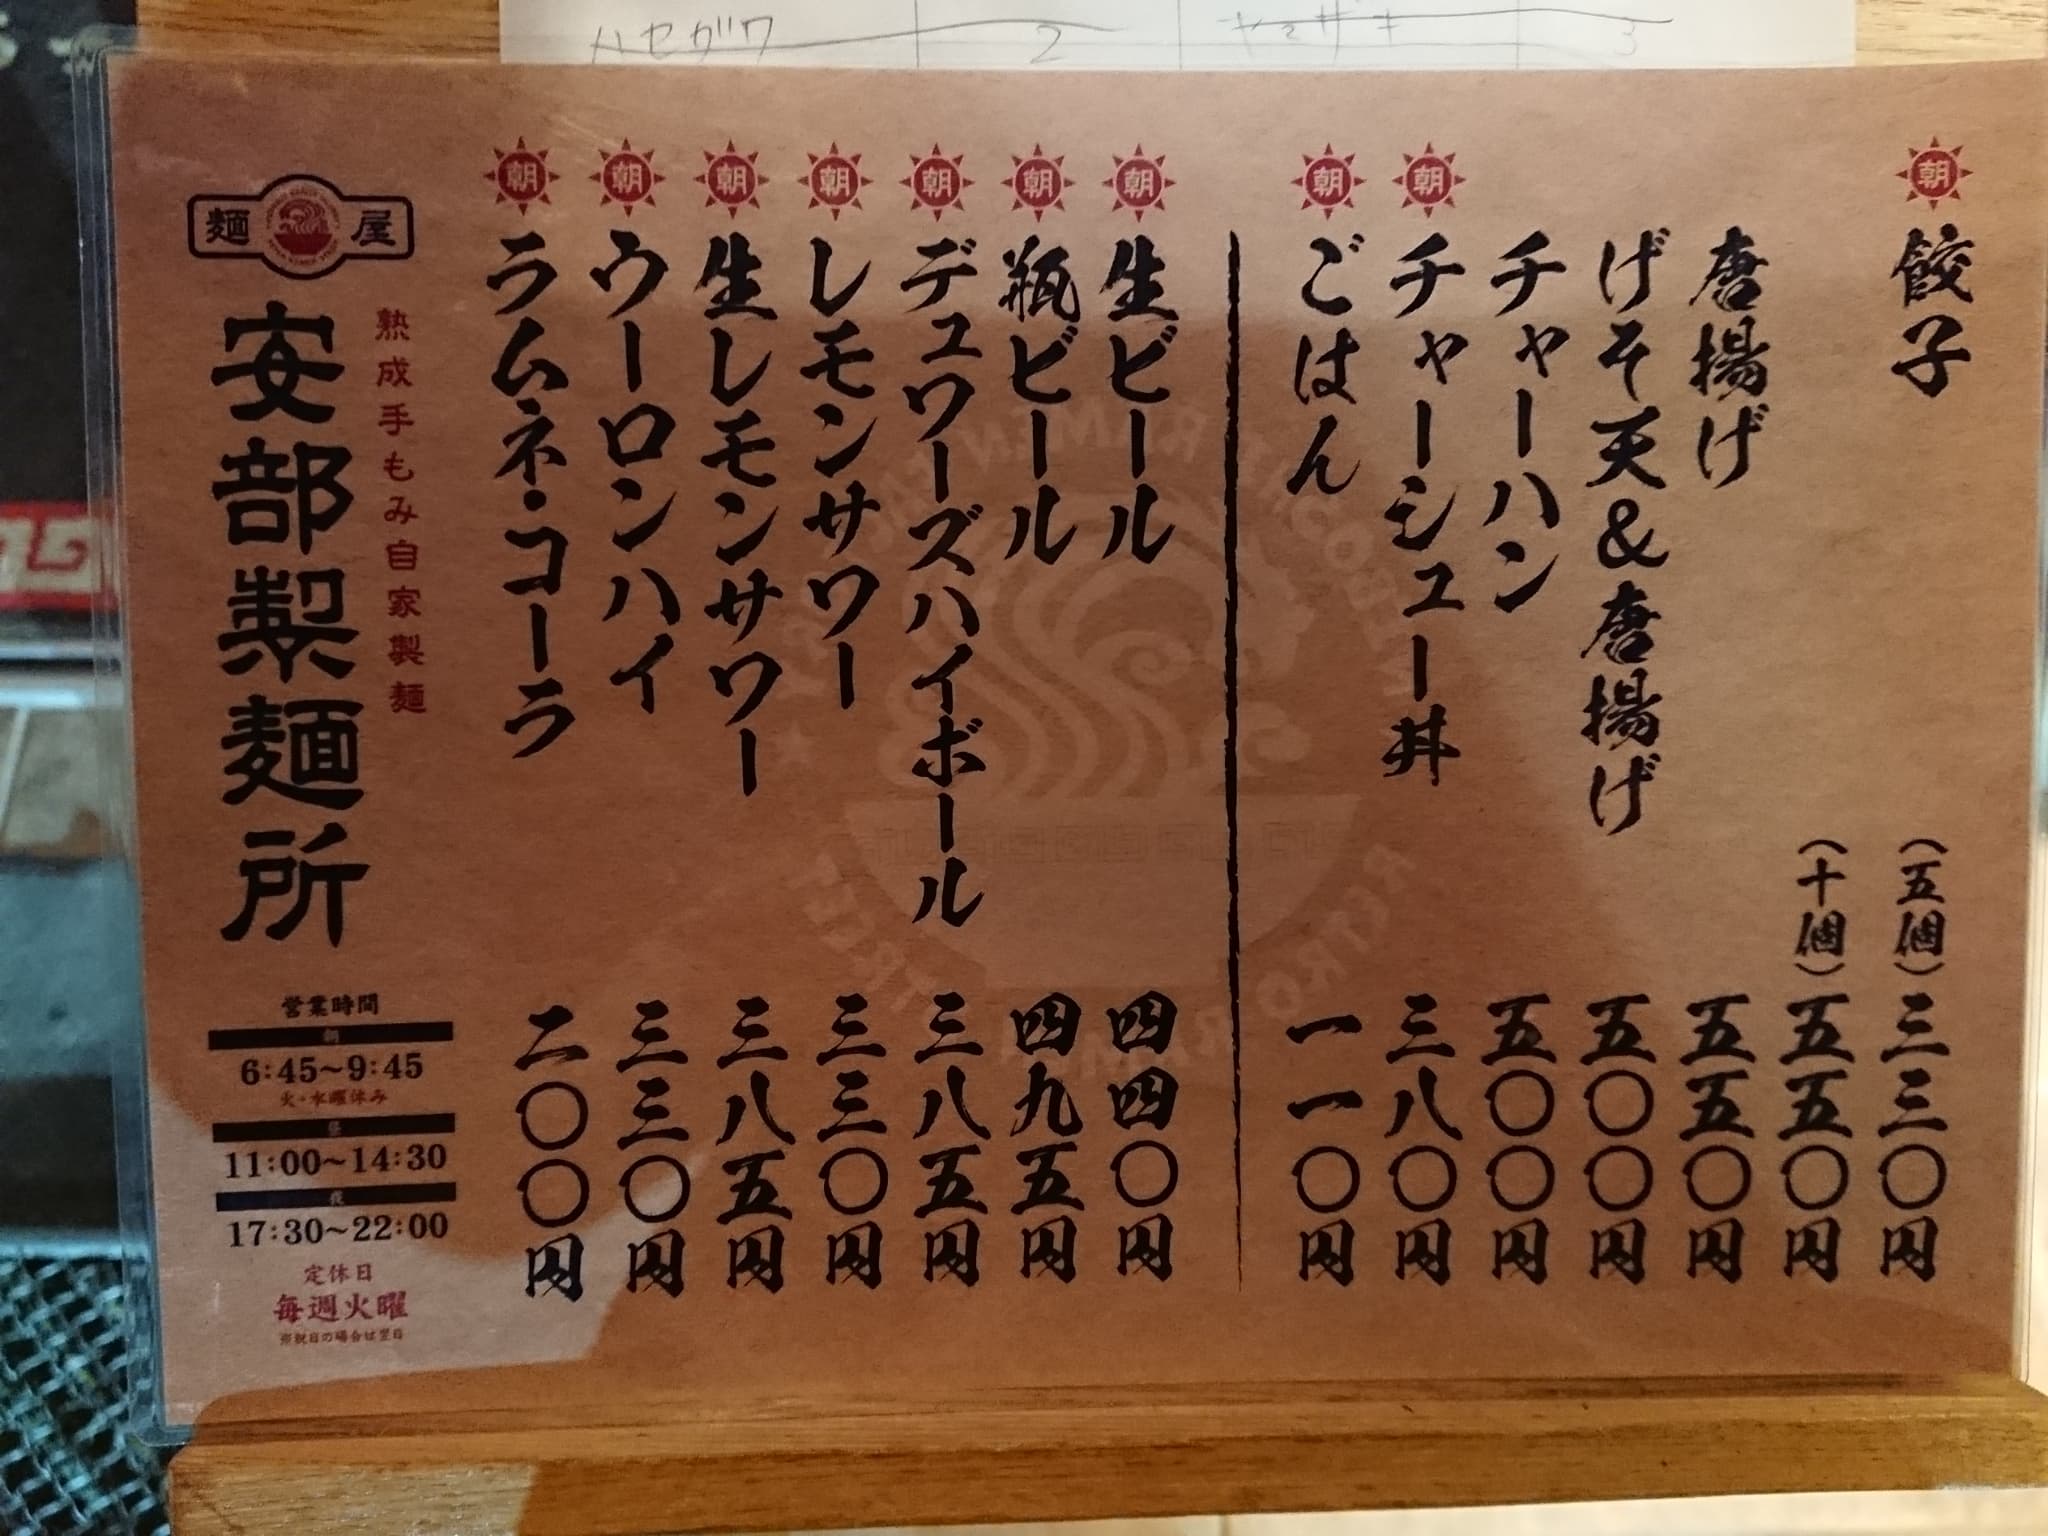 ハセガワ 2 ヤマザキ 3
朝 餃子 (五個) 三三〇円
(十個) 五五〇円
唐揚げ 五五〇円
げそ天&唐揚げ 五〇〇円
チャーハン 五〇〇円
朝 チャーシュー丼 三八〇円
朝 ごはん 一一〇円
朝 生ビール 四四〇円
朝 瓶ビール 四九五円
朝 デュワーズハイボール 三八五円
朝 レモンサワー 三三〇円
朝 生レモンサワー 三八五円
朝 ウーロンハイ 三三〇円
朝 ラムネ・コーラ 二〇〇円
熟成手もみ自家製麺
麺屋
安部製麺所
営業時間
朝
6:45~9:45
火・水曜休み
昼
11:00~14:30
夜
17:30~22:00
定休日
毎週火曜
※祝日の場合は翌日